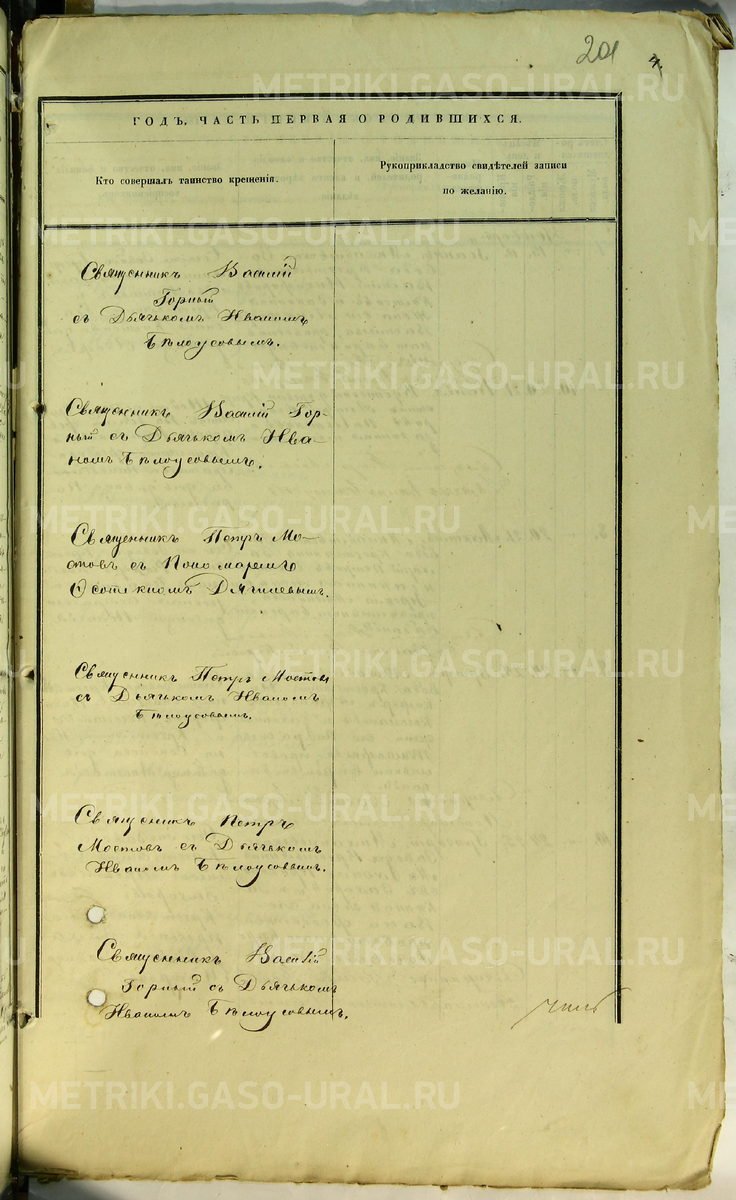 201
ГОДЪ, ЧАСТЬ ПЕРВАЯ О РОДИВШИХСЯ.
Кто совершалъ таинство крещенія.
Рукоприкладство свидѣтелей записи
по желанію.
Священникъ Василій
Горный
съ Дьячькомъ Иваномъ
Бѣлоусовымъ.
Священникъ Василій Гор-
ный съ Дьячькомъ Ива-
номъ Бѣлоусовымъ.
Священникъ Петръ Мо-
стовъ съ Пономаремъ
Дягилевымъ.
Священникъ Петръ Мостов
съ Дьячькомъ Иваномъ
Бѣлоусовымъ.
Священникъ Петръ
Мостовъ съ Дьячькомъ
Иваномъ Бѣлоусовымъ.
Священникъ Василій
Горный съ Дьячькомъ
Иваномъ Бѣлоусовымъ.
METRIKI.GASO-URAL.RU